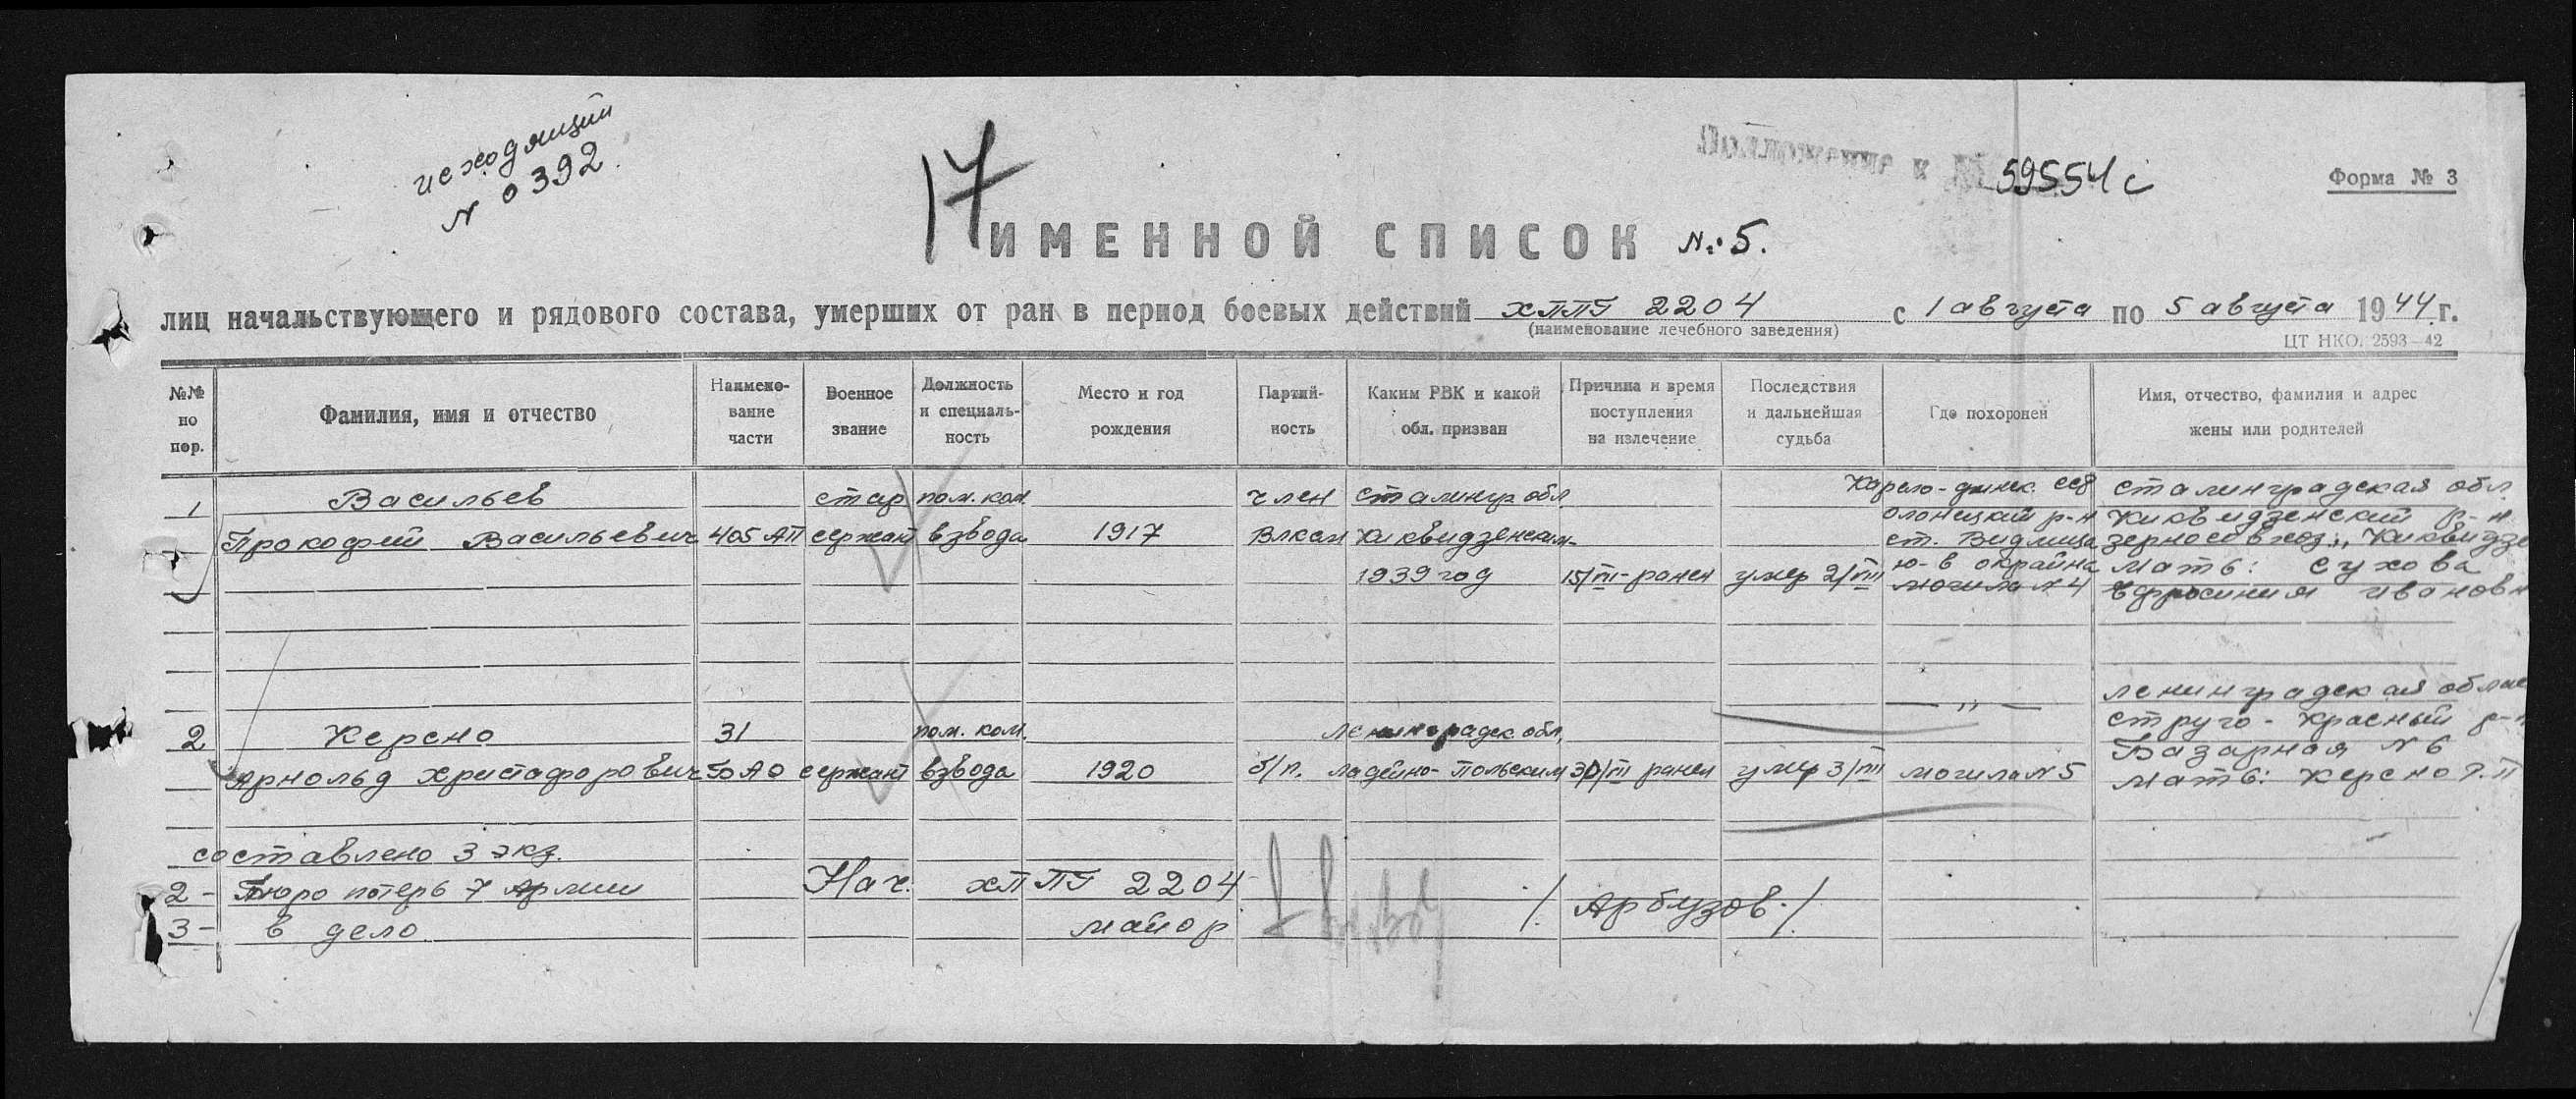 исходящий
N 0392.
17
Приложение к № 59554 с
Форма № 3
ИМЕННОЙ СПИСОК №5.
лиц начальствующего и рядового состава, умерших от ран в период боевых действий ХППГ 2204 с 1 августа по 5 августа 1944 г.
(наименование лечебного заведения)
ЦТ НКО. 2593—42
№№ по пор.
Фамилия, имя и отчество
Наимено-
вание
части
Военное
звание
Должность
и специаль-
ность
Место и год
рождения
Партий-
ность
Каким РВК и какой
обл. призван
Причина и время
поступления
на излечение
Последствия
и дальнейшая
судьба
Где похоронен
Имя, отчество, фамилия и адрес
жены или родителей
1 Васильев стар пом. ком. член сталингр обл Карело-финск. ССР Сталинградская обл.
Прокофий Васильевич 405 АП сержант взвода 1917 ВЛКСМ Киквидзенским олонецкий р-н Киквидзенский р-н
ст. Видлица зерносовхоз „Киквидзе
1939 год ранен умер 2/VIII ю-в окраина мать: Сухова
могила N 4 Ефросиния Ивановн
— „ — ленинградская облас
2 Керсно 31 пом. ком. Ленинградск. обл, струго-Красный р-н
Базарная N 6
Арнольд Христафорович БАО сержант взвода 1920 б/п. ладейно-Польским ранен умер 3/VIII могила N 5 мать: Керсно
составлено 3 экз.
2 - Бюро потерь 7 Армии Нач. ХППГ 2204
3 - в дело майор / Арбузов /